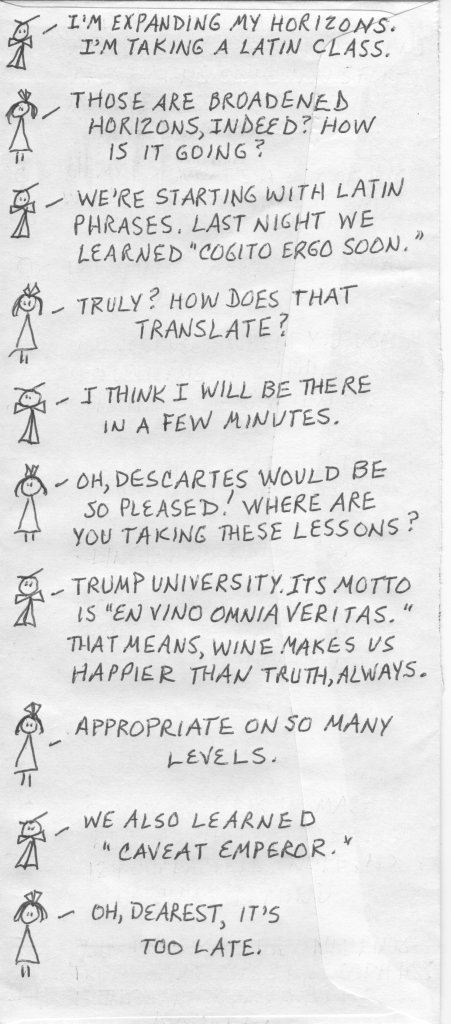 I'M EXPANDING MY HORIZONS.
I'M TAKING A LATIN CLASS.
THOSE ARE BROADENED
HORIZONS, INDEED? HOW
IS IT GOING?
WE'RE STARTING WITH LATIN
PHRASES. LAST NIGHT WE
LEARNED "COGITO ERGO SOON."
TRULY? HOW DOES THAT
TRANSLATE?
I THINK I WILL BE THERE
IN A FEW MINUTES.
OH, DESCARTES WOULD BE
SO PLEASED! WHERE ARE
YOU TAKING THESE LESSONS?
TRUMP UNIVERSITY. ITS MOTTO
IS "EN VINO OMNIA VERITAS."
THAT MEANS, WINE MAKES US
HAPPIER THAN TRUTH, ALWAYS.
APPROPRIATE ON SO MANY
LEVELS.
WE ALSO LEARNED
"CAVEAT EMPEROR."
OH, DEAREST, IT'S
TOO LATE.